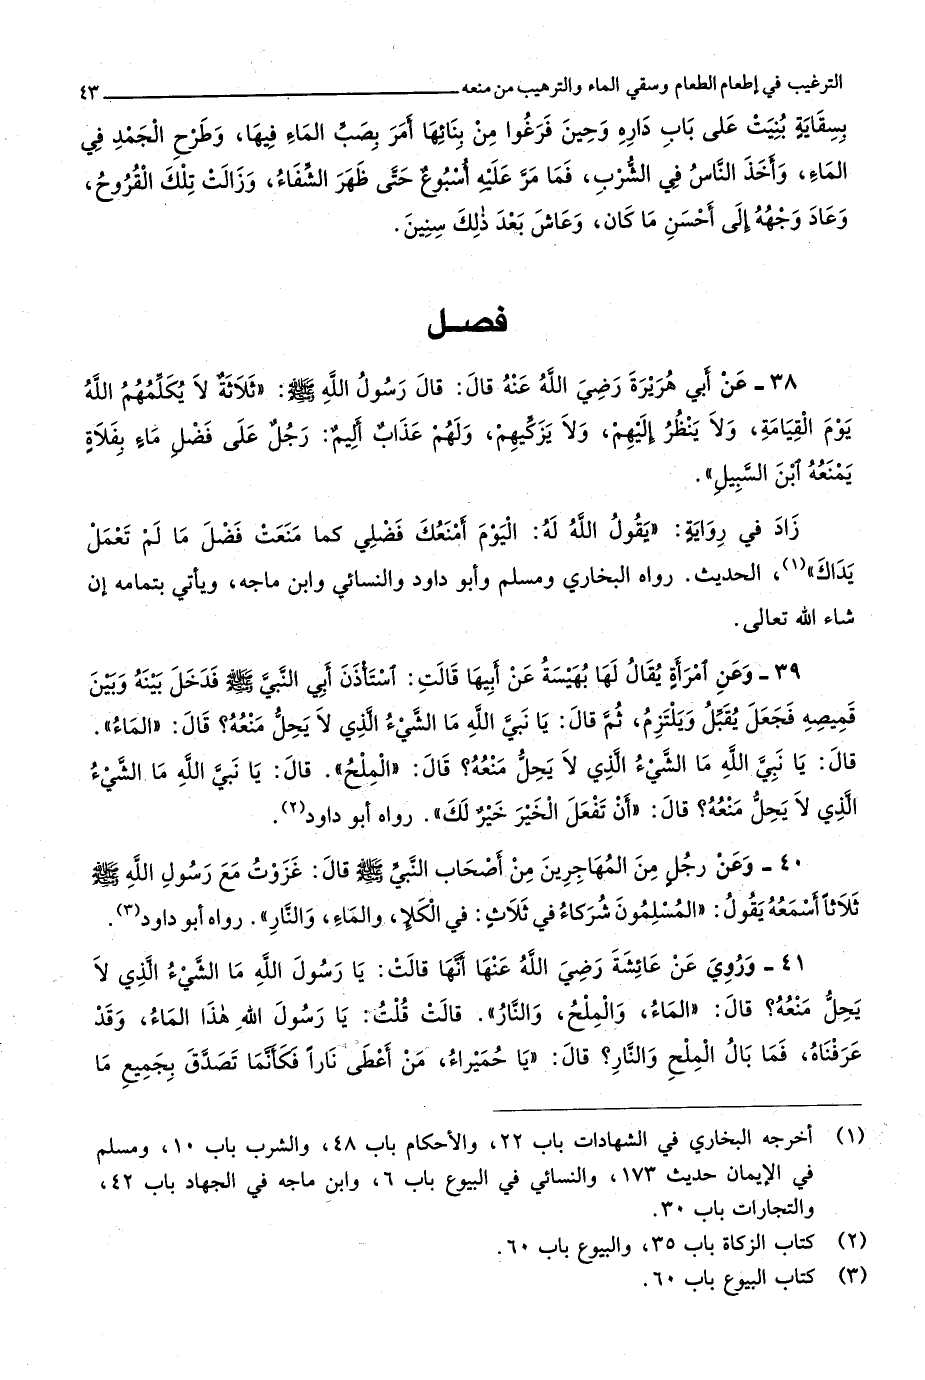 الترغيب في إطعام الطعام وسقي الماء والترهيب من منعه ٤٣
بِسِقَايَةٍ بُنِيَتْ عَلى بَابِ دَارِهِ وَحِينَ فَرَغُوا مِنْ بِنَائِهَا أَمَرَ بِصَبِّ المَاءِ فِيهَا، وَطَرْحِ الْجَمْدِ فِي
المَاءِ، وَأَخَذَ النَّاسُ فِي الشُّرْبِ، فَمَا مَرَّ عَلَيْهِ أُسْبُوعٌ حَتَّى ظَهَرَ الشِّفَاءُ، وَزَالَتْ تِلْكَ الْقُرُوحُ،
وَعَادَ وَجْهُهُ إِلَى أَحْسَنِ مَا كَان، وَعَاشَ بَعْدَ ذٰلِكَ سِنِينَ.
فصــل
٣٨ ـ عَنْ أَبي هُرَيْرَةَ رَضِيَ اللَّهُ عَنْهُ قالَ: قالَ رَسُولُ اللَّهِ ﷺ: «ثَلَاثَةٌ لاَ يُكَلِّمُهُمُ اللَّهُ
يَوْمَ الْقِيَامَةِ، وَلاَ يَنْظُرُ إِلَيْهِمْ، وَلاَ يَزَكِّيهِمْ، وَلَهُمْ عَذَابٌ أَلِيمٌ: رَجُلٌ عَلَى فَضْلِ مَاءٍ بِفَلاَةٍ
يَمْنَعُهُ ٱبْنَ السَّبِيلِ».
زَادَ في رِوَايَةٍ: «يَقُولُ اللَّهُ لَهُ: الْيَوْمَ أَمْنَعُكَ فَضْلِي كما مَنَعَتْ فَضْلَ مَا لَمْ تَعْمَلْ
يَدَاكَ»(١)، الحديث. رواه البخاري ومسلم وأبو داود والنسائي وابن ماجه، ويأتي بتمامه إن
شاء الله تعالى.
٣٩ ـ وَعَنِ ٱمْرَأَةٍ يُقَالُ لَهَا بُهَيْسَةُ عَنْ أَبِيهَا قَالَتِ: ٱسْتَأْذَنَ أَبِي النَّبِيَّ ﷺ فَدَخَلَ بَيْنَهُ وَبَيْنَ
قَمِيصِهِ فَجَعَلَ يُقَبِّلُ وَيَلْتَزِمُ، ثُمَّ قالَ: يَا نَبِيَّ اللَّهِ مَا الشَّيْءُ الَّذِي لاَ يَحِلُّ مَنْعُهُ؟ قَالَ: «المَاءُ».
قالَ: يَا نَبِيَّ اللَّهِ مَا الشَّيْءُ الَّذِي لاَ يَحِلُّ مَنْعُهُ؟ قَالَ: «الْمِلْحُ». قالَ: يَا نَبِيَّ اللَّهِ مَا الشَّيْءُ
الَّذِي لاَ يَحِلُّ مَنْعُهُ؟ قالَ: «أَنْ تَفْعَلَ الْخَيْرَ خَيْرٌ لَكَ». رواه أبو داود(٢).
٤٠ ـ وَعَنْ رجُلٍ مِنَ المُهَاجِرِينَ مِنْ أَصْحَابِ النَّبِيِّ ﷺ قالَ: غَزَوْتُ مَعَ رَسُولِ اللَّهِ ﷺ
ثَلَاثاً أَسْمَعُهُ يَقُولُ: «المُسْلِمُونَ شُرَكَاءُ في ثَلَاثٍ: في الْكَلإِ، والمَاءِ، وَالنَّارِ». رواه أبو داود(٣).
٤١ ـ وَرُوِيَ عَنْ عَائِشَةَ رَضِيَ اللَّهُ عَنْهَا أَنَّهَا قالَتْ: يَا رَسُولَ اللَّهِ مَا الشَّيْءُ الَّذِي لاَ
يَحِلُّ مَنْعُهُ؟ قالَ: «المَاءُ، وَالْمِلْحُ، وَالنَّارُ». قالَتْ قُلْتُ: يَا رَسُولَ اللهِ هٰذَا المَاءُ، وَقَدْ
عَرَفْنَاهُ، فَمَا بَالُ الْمِلْحِ وَالنَّارِ؟ قالَ: «يَا حُمَيْراءُ، مَنْ أَعْطَى نَاراً فَكَأَنَّمَا تَصَدَّقَ بِجَمِيعِ مَا
(١) أخرجه البخاري في الشهادات باب ٢٢، والأحكام باب ٤٨، والشرب باب ١٠، ومسلم
في الإيمان حديث ١٧٣، والنسائي في البيوع باب ٦، وابن ماجه في الجهاد باب ٤٢،
والتجارات باب ٣٠.
(٢) كتاب الزكاة باب ٣٥، والبيوع باب ٦٠.
(٣) كتاب البيوع باب ٦٠.